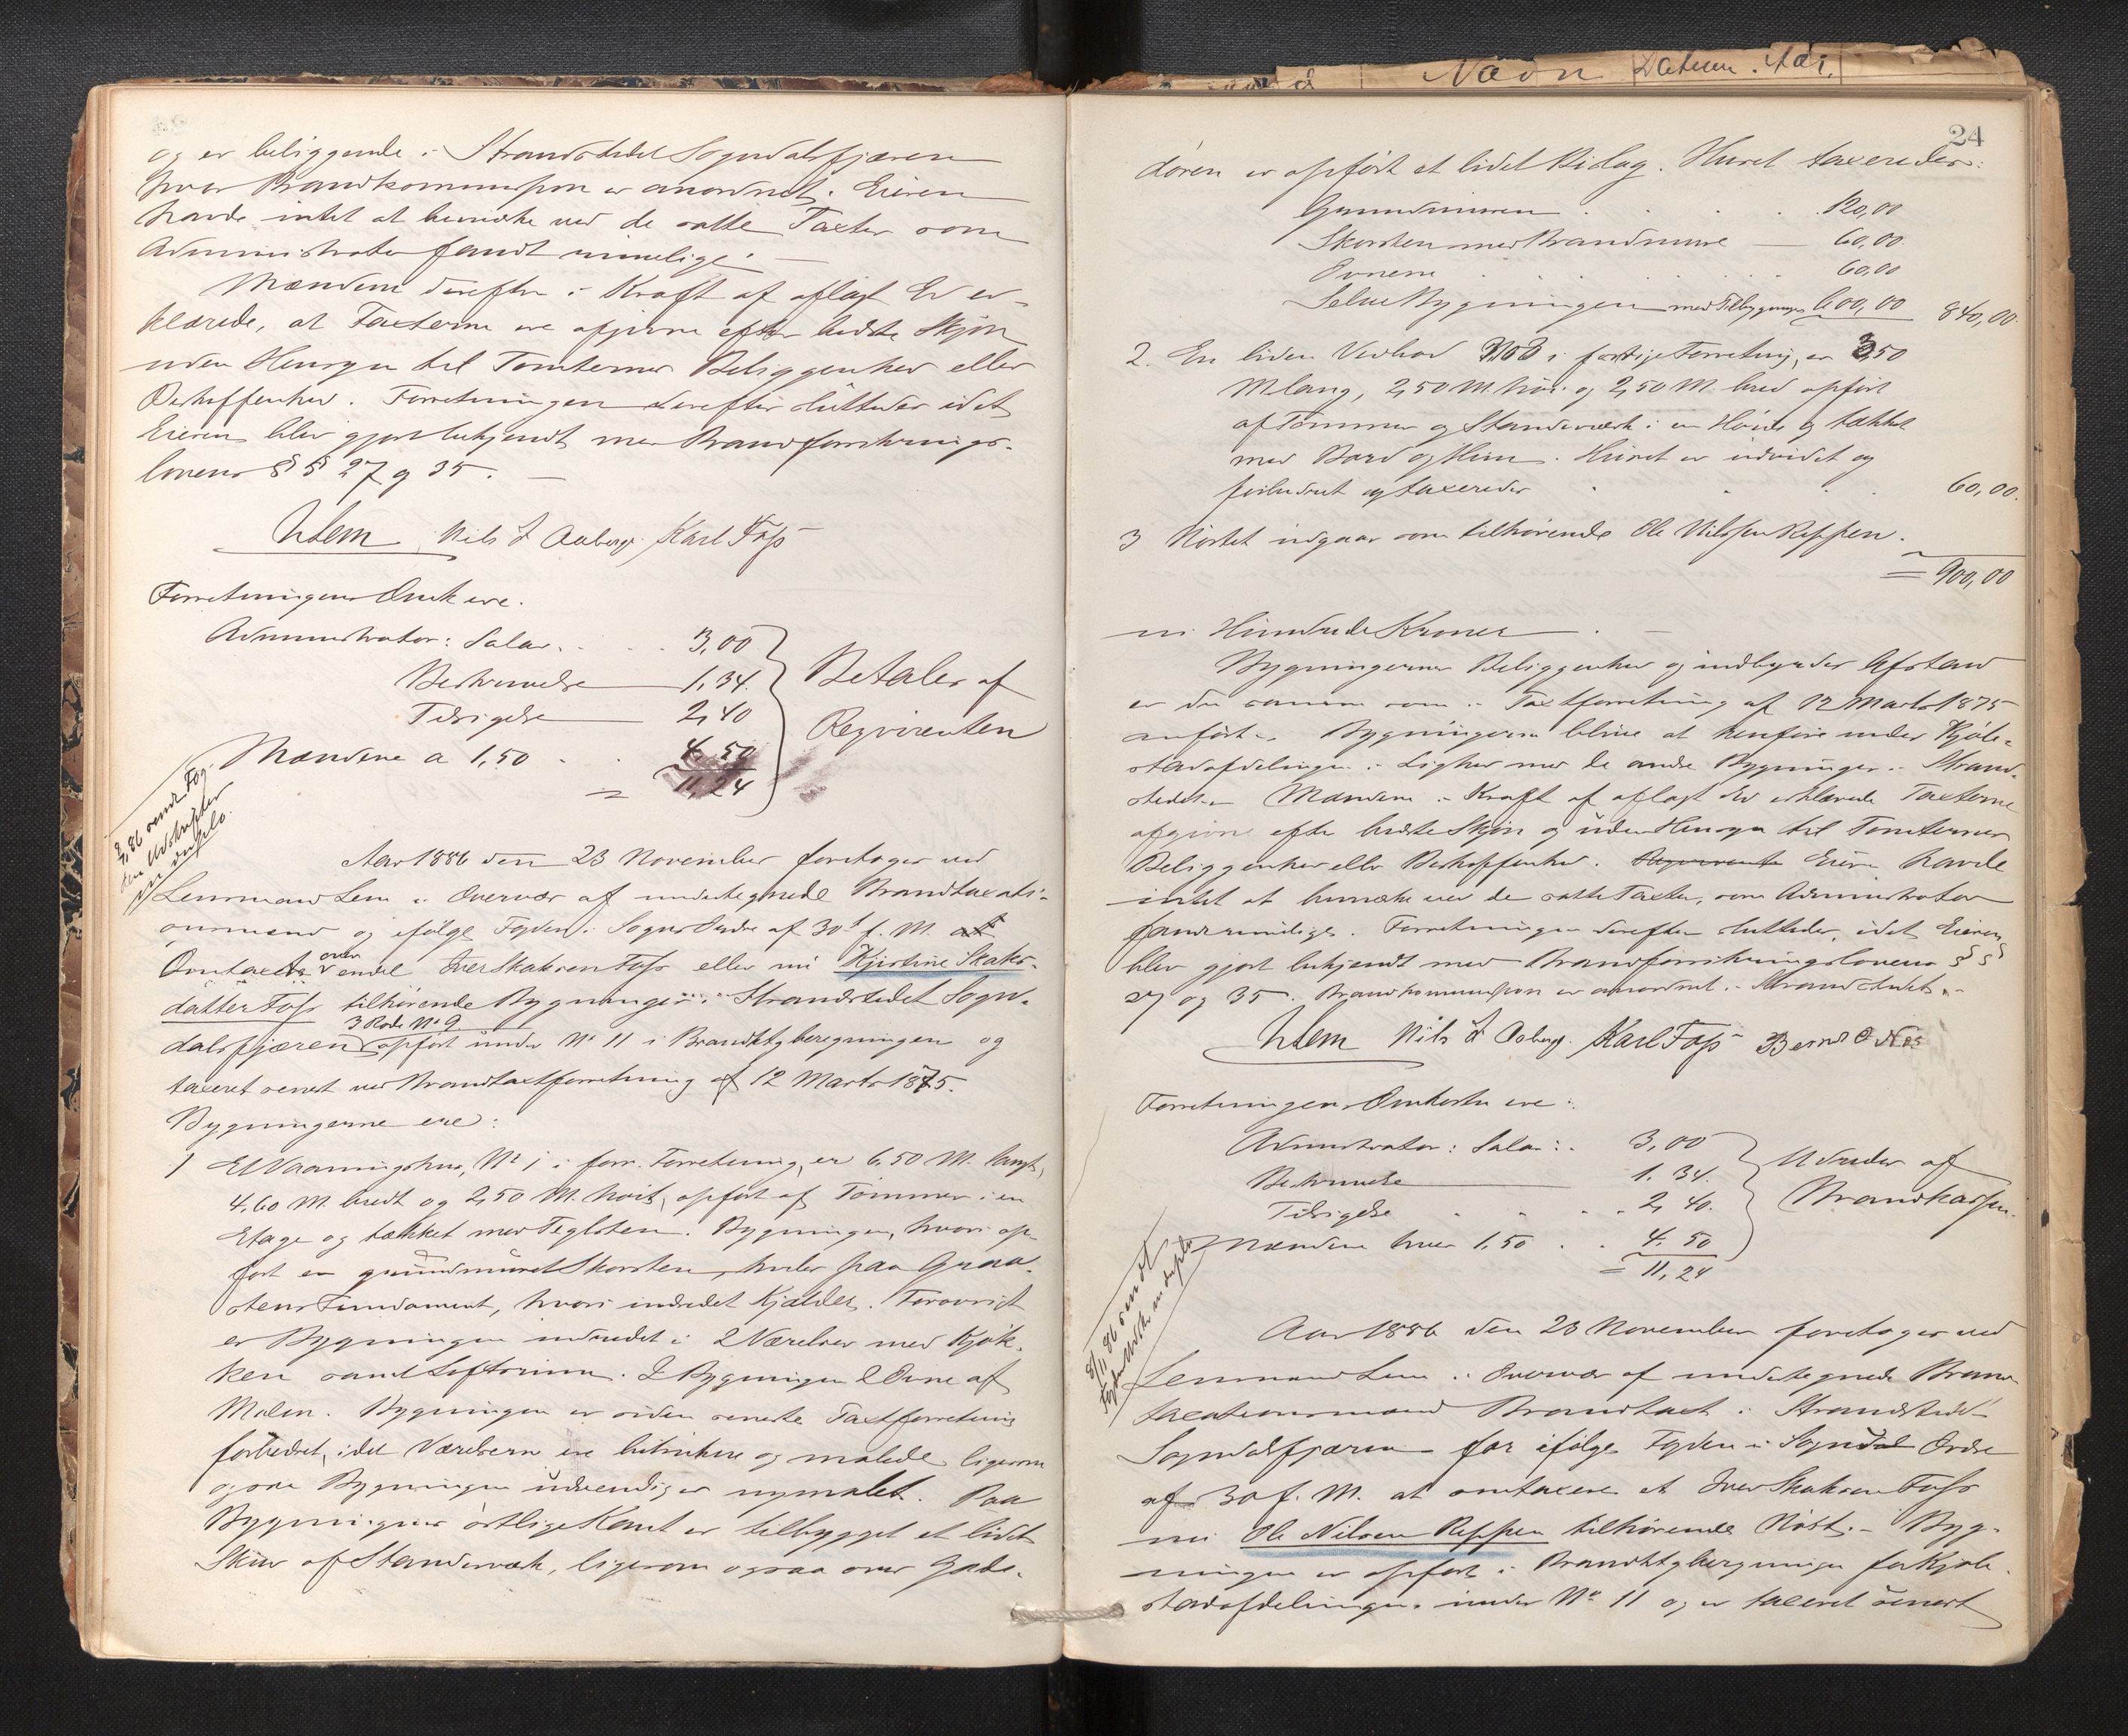 og er beliggende i Strandstedet Sogndalsfjæren
hvor Brandkommission er anordnet. Eieren
havde intet at bemærke ved de satte Taxter som
Administrator fandt rimelige. —
Mændene derefter i Kraft af aflagt Ed er-
klærede, at Taxterne ere afgivne efter bedste Skjøn
uden Hensyn til Tomternes Beliggenhed eller
Beskaffenhed. Forretningen derefter sluttedes idet
Eieren blev gjort bekjendt med Brandforsikrings-
lovens §§ 27 og 35. —
Lem Nils Aaberge Karl Foss
Forretningens Omk ere.
Administrator: Salar. . . . 3,00
Beskrivelse — 1,34.
Tilsigelse — 2,40
Mændene a 1,50 . . 4,50
= 11,24
Betales af
Reqvirenten
86 sendt Fog.
den Udskrifter
in duplo.
Aar 1886 den 23 November foretoges ved
Lensmand Lem i Overvær af undertegnede Brandtaxati-
onsmænd og ifølge Fogden i Sogns Ordre af 30te f. M.
Omtaxt over endel Iver Skaksen Foss eller nu Kjirstine Skaks-
datter Foss tilhørende Bygninger i Strandstedet Sogn-
3 Rode No 9
dalsfjæren opført under No 11 i Brandtberegningen og
taxeret senest ved Brandtaxtforretning af 12 Marts 1875.
Bygningerne ere:
1 Et Vaaningshus, No 1 i forr. Forretning, er 6,50 M. langt,
4,60 M. bredt og 2,50 M. høit, opført af Tømmer i en
Etage og tækket med Teglsten. Bygningen, hvori op-
ført en grundmuret Skorsten, hviler paa Graa-
stens Fundament, hvori indredet Kjælder. Forøvrigt
er Bygningen indredet i 2 Værelser med Kjøk-
ken samt Loftsrum. I Bygningen 2 Ovne af
Malm. Bygningen er siden seneste Taxtforretning
forbedret, idet Værelserne ere betrukne og malede ligesom
ogsaa Bygningen udvendig er nymalet. Paa
Bygningens østlige Kant er tilbygget et lidet
Skur af Standværk, ligesom ogsaa over Gade-
24
døren er opført et lidet Bislag. Huset taxeredes:
Grundmuren . . . . 120,00
Skorsten med Brandmure — 60,00.
Ovnene . . . . . 60,00
Selve Bygningen med Tilbygninger 600,00 840,00.
2. En liden Vedbod No 3 i forrige Forretning, er 3,50
M. lang, 2,50 M. høi og 2,50 M. bred opført
af Tømmer og Standværk i en Høide og tækket
med Bord og Him. Huset er udvidet og
forbedret og taxeredes . . . 60,00.
3 Nøstet udgaar som tilhørende Ole Nilssen Reppen.
= 900,00
ni Hundrede Kroner — . —
Bygningernes Beliggenhed og indbyrdes Afstand
er den samme som i Taxtforretning af 12 Marts 1875
anført. Bygningerne blive at henføre under Kjøb-
stadafdelingen i Lighed med de andre Bygninger i Strand-
stedet. Mændene i Kraft af aflagt Ed erklærede Taxterne
afgivne efter bedste Skjøn og uden Hensyn til Tomternes
Beliggenhed eller Beskaffenhed. Reqvirenten Eieren havde
intet at bemærke ved de satte Taxter, som Administrator
fandt rimelige. Forretningen derefter sluttedes, idet Eieren
blev gjort bekjendt med Brandforsikringslovens §§
27 og 35. Brandkommission er anordnet i Strandstedet.
Lem Nils Aaberge Karl Foss Bernt O Nes
Forretningens Omkostn. ere:
Administrator: Salar: . 3,00
Beskrivelse — 1.34.
Tilsigelse . . . 2,40.
Mændene hver 1,50 . . 4.50
= 11,24
Udredes af
Brandkassen.
86 sendt
Fogden Udskr in duplo
Aar 1886 den 23 November foretoges ved
Lensmand Lem i Overvær af undertegnede Brand-
taxationsmænd Brandtaxt i Strandstedet
Sogndalsfjæren for ifølge Fogden i Sogns Ordre
af 30 f. M. at omtaxere et Iver Skaksen Foss
nu Ole Nilsen Reppen tilhørende Nøst. — Byg-
ningen er opført i Brandtberegningen for Kjøb-
stadafdelingen under No 11 og er taxeret senest